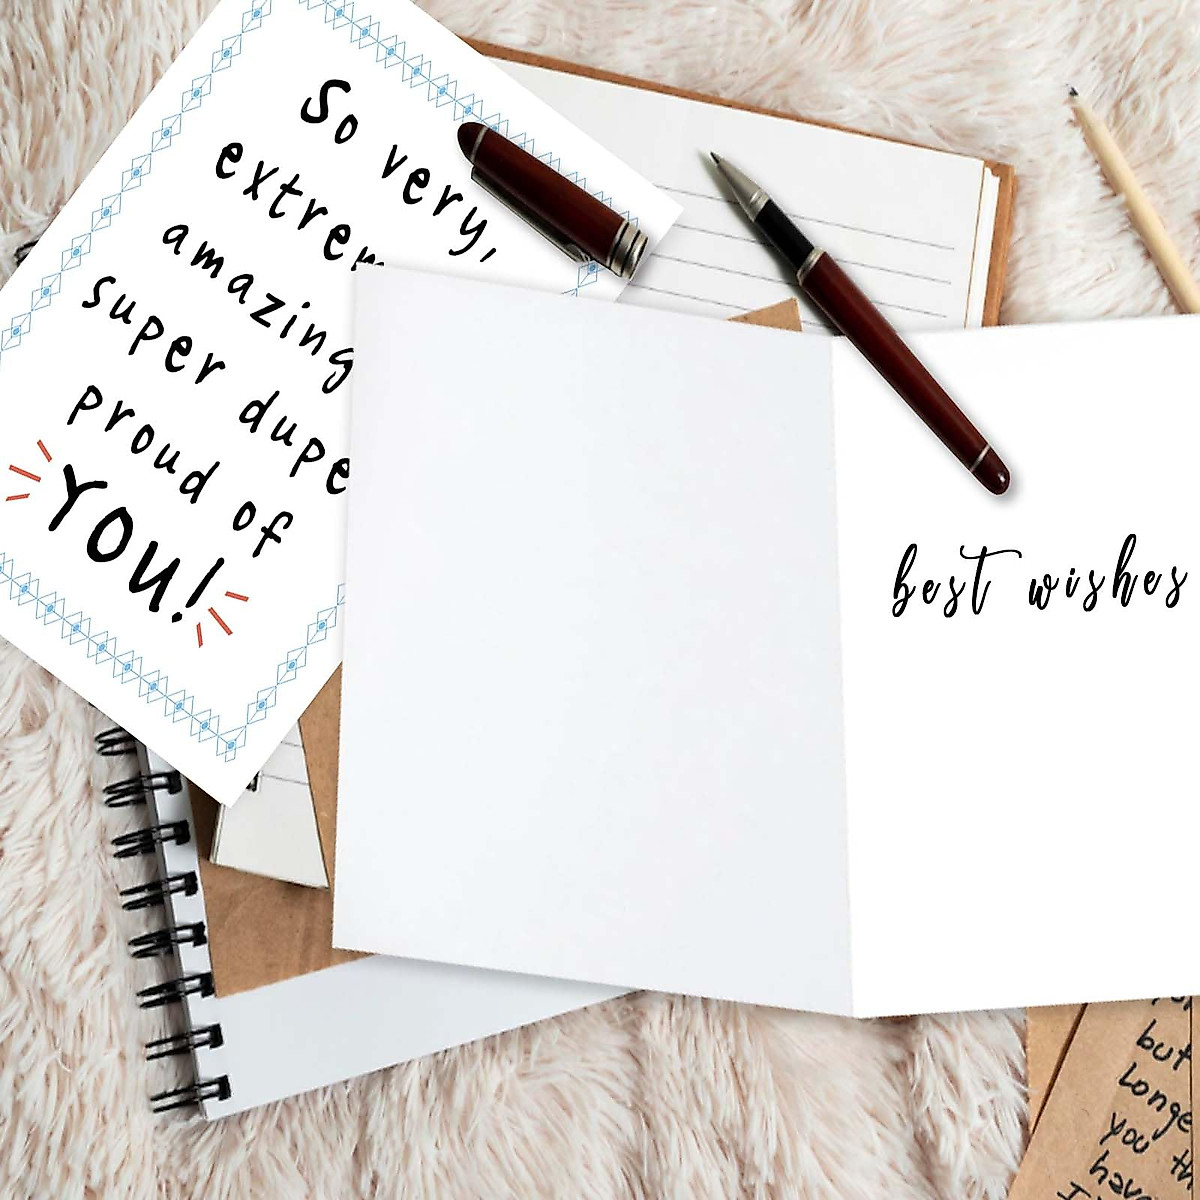 So very,
extrem
amazing
super dupe
proud of
YOU!
best wishes
but
Longe
you th
have